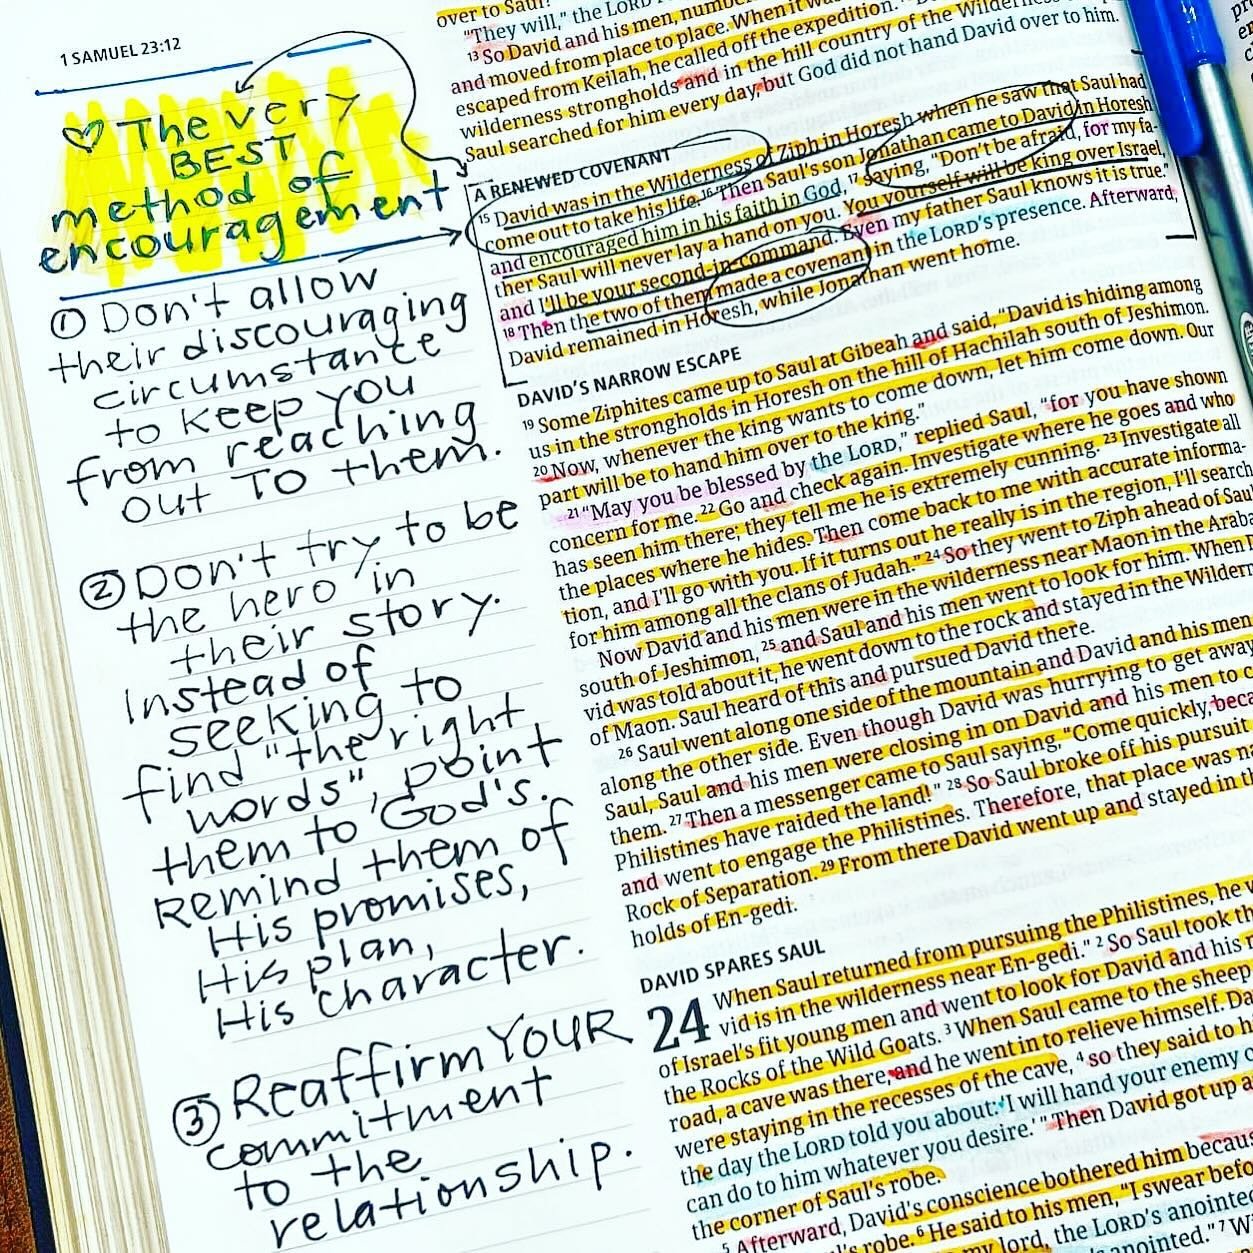 1 SAMUEL 23:12
♡ The very
BEST
method of
encouragement
① Don't allow
their discouraging
circumstance
to keep you
from reaching
out TO them.
② Don't try to be
the hero in
their story.
Instead of
seeking to
find "the right
words", point
them to God's.
Remind them of
His promises,
His plan,
His character.
③ Reaffirm YOUR
commitment
to the
relationship.
over to Saul?"
"They will," the LORD
13 So David and his men, number
and moved from place to place. When it was
escaped from Keilah, he called off the expedition.
wilderness strongholds and in the hill country of the Wilderness
Saul searched for him every day, but God did not hand David over to him.
A RENEWED COVENANT
15 David was in the Wilderness of Ziph in Horesh when he saw that Saul had
come out to take his life. 16 Then Saul's son Jonathan came to David in Horesh
and encouraged him in his faith in God, 17 saying, "Don't be afraid, for my fa-
ther Saul will never lay a hand on you. You yourself will be king over Israel,
and I'll be your second-in-command. Even my father Saul knows it is true."
18 Then the two of them made a covenant in the LORD's presence. Afterward,
David remained in Horesh, while Jonathan went home.
DAVID'S NARROW ESCAPE
19 Some Ziphites came up to Saul at Gibeah and said, "David is hiding among
us in the strongholds in Horesh on the hill of Hachilah south of Jeshimon.
20 Now, whenever the king wants to come down, let him come down. Our
part will be to hand him over to the king."
21 "May you be blessed by the LORD," replied Saul, "for you have shown
concern for me. 22 Go and check again. Investigate where he goes and who
has seen him there; they tell me he is extremely cunning. 23 Investigate all
the places where he hides. Then come back to me with accurate informa-
tion, and I'll go with you. If it turns out he really is in the region, I'll search
for him among all the clans of Judah." 24 So they went to Ziph ahead of Saul
Now David and his men were in the wilderness near Maon in the Araba
south of Jeshimon, 25 and Saul and his men went to look for him. When
vid was told about it, he went down to the rock and stayed in the Wilder
of Maon. Saul heard of this and pursued David there.
26 Saul went along one side of the mountain and David and his men
along the other side. Even though David was hurrying to get away
Saul, Saul and his men were closing in on David and his men to
them. 27 Then a messenger came to Saul saying, "Come quickly, beca
Philistines have raided the land!" 28 So Saul broke off his pursuit
and went to engage the Philistines. Therefore, that place was na
Rock of Separation. 29 From there David went up and stayed in th
holds of En-gedi.
DAVID SPARES SAUL
24 When Saul returned from pursuing the Philistines, he w
vid is in the wilderness near En-gedi." 2 So Saul took th
of Israel's fit young men and went to look for David and his
the Rocks of the Wild Goats. 3 When Saul came to the sheep
road, a cave was there, and he went in to relieve himself. Da
were staying in the recesses of the cave, 4 so they said to h
the day the LORD told you about: 'I will hand your enemy
can do to him whatever you desire.'" Then David got up
the corner of Saul's robe.
5 Afterward, David's conscience bothered him becaus
l's robe. 6 He said to his men, "I swear befo
my lord, the LORD's anointed
anointed." 7